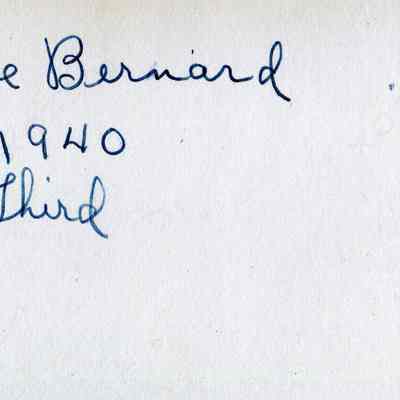 e Bernard
1940
Third